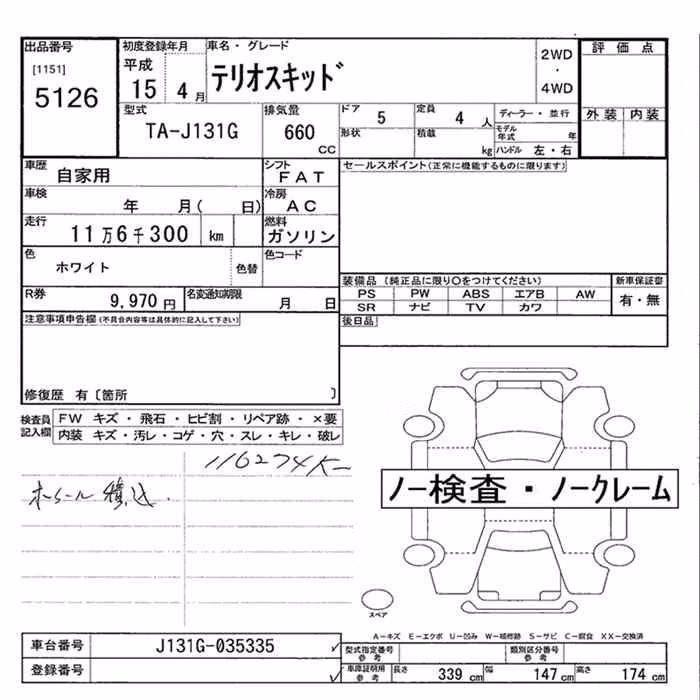 出品番号
[1151]
5126
初度登録年月
平成
15 4 月
車名・グレード
テリオスキッド
2WD
・
4WD
評価点
外装 内装
型式
TA-J131G
排気量
660 CC
ドア 5
定員 4 人
ディーラー・並行
形状
積載 kg
モデル年式 年
ハンドル 左・右
車歴
自家用
シフト
FAT
セールスポイント(正常に機能するものに限ります)
車検
年 月( 日)
冷房
AC
走行
11万6千300 km
燃料
ガソリン
色
ホワイト
色替
色コード
R券
9,970 円
名変通知期限
月 日
装備品 (純正品に限り○をつけてください)
PS PW ABS エアB AW
SR ナビ TV カワ
新車保証書
有・無
後日品
注意事項申告欄(不具合内容等は具体的に記入して下さい)
修復歴 有〔箇所 〕
検査員記入欄
FW キズ・飛石・ヒビ割・リペア跡・×要
内装 キズ・汚レ・コゲ・穴・スレ・キレ・破レ
116274K
ホイール積込.
ノー検査・ノークレーム
スペア
A-キズ E-エクボ U-凹み W-補修跡 S-サビ C-腐食 XX-交換済
車台番号 J131G-035335
登録番号
型式指定番号 参考
類別区分番号 参考
車庫証明用 参考
長さ 339 cm 幅 147 cm 高さ 174 cm